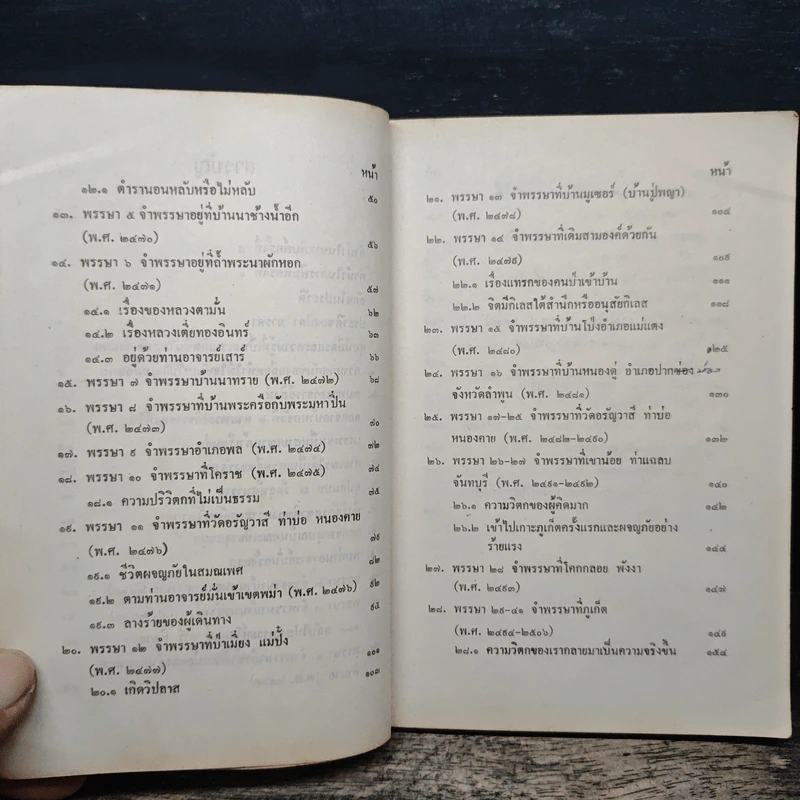 หน้า
๑๒.๑ ตำรานอนหลับหรือไม่หลับ ๕๐
๑๓. พรรษา ๕ จำพรรษาอยู่ที่บ้านนาช้างน้ำอีก
(พ.ศ. ๒๔๗๐) ๕๖
๑๔. พรรษา ๖ จำพรรษาอยู่ที่ถ้ำพระนาผักหอก
(พ.ศ. ๒๔๗๑) ๕๗
๑๔.๑ เรื่องของหลวงตามั่น ๖๒
๑๔.๒ เรื่องหลวงเตี่ยทองอินทร์ ๖๓
๑๔.๓ อยู่ด้วยท่านอาจารย์เสาร์ ๖๖
๑๕. พรรษา ๗ จำพรรษาบ้านนาทราย (พ.ศ. ๒๔๗๒) ๖๘
๑๖. พรรษา ๘ จำพรรษาที่บ้านพระครือกับพระมหาปิ่น
(พ.ศ. ๒๔๗๓) ๗๐
๑๗. พรรษา ๙ จำพรรษาอำเภอพล (พ.ศ. ๒๔๗๔) ๗๒
๑๘. พรรษา ๑๐ จำพรรษาที่โคราช (พ.ศ. ๒๔๗๕) ๗๔
๑๘.๑ ความปริวิตกที่ไม่เป็นธรรม ๗๕
๑๙. พรรษา ๑๑ จำพรรษาที่วัดอรัญวาสี ท่าบ่อ หนองคาย
(พ.ศ. ๒๔๗๖) ๗๙
๑๙.๑ ชีวิตผจญภัยในสมณเพศ ๘๒
๑๙.๒ ตามท่านอาจารย์มั่นเข้าเขตพม่า (พ.ศ. ๒๔๗๖) ๙๒
๑๙.๓ ลางร้ายของผู้เดินทาง ๙๕
๒๐. พรรษา ๑๒ จำพรรษาที่ป่าเมี่ยง แม่ปั๋ง
(พ.ศ. ๒๔๗๗) ๑๐๑
๒๐.๑ เกิดวิปลาส ๑๐๓
หน้า
๒๑. พรรษา ๑๓ จำพรรษาที่บ้านมูเซอร์ (บ้านปู่พญา)
(พ.ศ. ๒๔๗๘) ๑๐๔
๒๒. พรรษา ๑๔ จำพรรษาที่เดิมสามองค์ด้วยกัน
(พ.ศ. ๒๔๗๙) ๑๐๙
๒๒.๑ เรื่องแทรกของคนป่าเข้าบ้าน ๑๑๑
๒๒.๒ จิตมีกิเลสใต้สำนึกหรืออนุสัยกิเลส ๑๑๘
๒๓. พรรษา ๑๕ จำพรรษาที่บ้านโป่งอำเภอแม่แตง
(พ.ศ. ๒๔๘๐) ๑๒๕
๒๔. พรรษา ๑๖ จำพรรษาที่บ้านหนองดู่ อำเภอปากช่อง
จังหวัดลำพูน (พ.ศ. ๒๔๘๑) ๑๓๐
๒๕. พรรษา ๑๗-๒๕ จำพรรษาที่วัดอรัญวาสี ท่าบ่อ
หนองคาย (พ.ศ. ๒๔๘๒-๒๔๙๐) ๑๓๒
๒๖. พรรษา ๒๖-๒๗ จำพรรษาที่เขาน้อย ท่าแฉลบ
จันทบุรี (พ.ศ. ๒๔๙๑-๒๔๙๒) ๑๔๐
๒๖.๑ ความวิตกของผู้คิดมาก ๑๔๒
๒๖.๒ เข้าไปเกาะภูเก็ตครั้งแรกและผจญภัยอย่าง
ร้ายแรง ๑๔๔
๒๗. พรรษา ๒๘ จำพรรษาที่โคกกลอย พังงา
(พ.ศ. ๒๔๙๓) ๑๔๗
๒๘. พรรษา ๒๙-๔๑ จำพรรษาที่ภูเก็ต
(พ.ศ. ๒๔๙๔-๒๕๐๖) ๑๔๙
๒๘.๑ ความวิตกของเรากลายมาเป็นความจริงขึ้น ๑๕๔